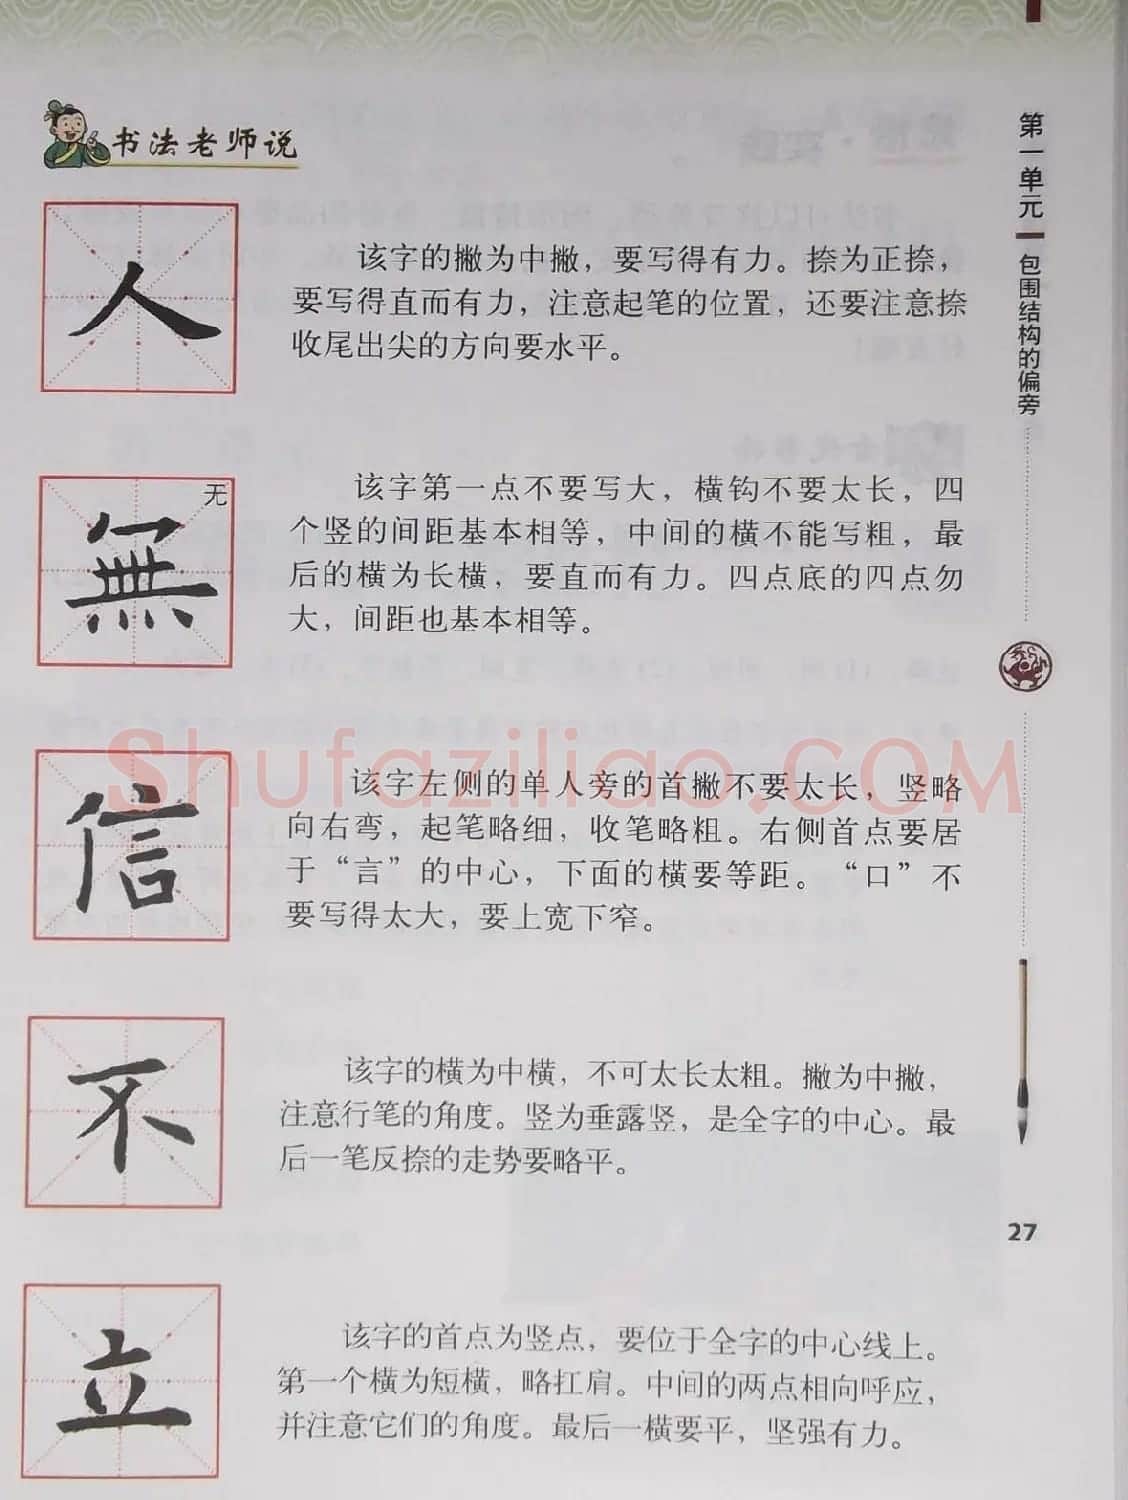 书法老师说
人
该字的撇为中撇，要写得有力。捺为正捺，
要写得直而有力，注意起笔的位置，还要注意捺
收尾出尖的方向要水平。
無
无
该字第一点不要写大，横钩不要太长，四
个竖的间距基本相等，中间的横不能写粗，最
后的横为长横，要直而有力。四点底的四点勿
大，间距也基本相等。
信
该字左侧的单人旁的首撇不要太长，竖略
向右弯，起笔略细，收笔略粗。右侧首点要居
于“言”的中心，下面的横要等距。“口”不
要写得太大，要上宽下窄。
不
该字的横为中横，不可太长太粗。撇为中撇，
注意行笔的角度。竖为垂露竖，是全字的中心。最
后一笔反捺的走势要略平。
立
该字的首点为竖点，要位于全字的中心线上。
第一个横为短横，略扛肩。中间的两点相向呼应，
并注意它们的角度。最后一横要平，坚强有力。
第一单元 包围结构的偏旁
27
Shufaziliao.COM